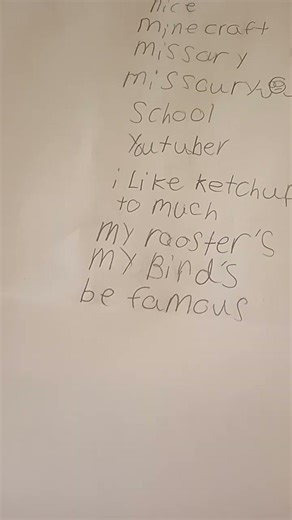 nice
minecraft
missary
missoury
School
Youtuber
i Like ketchup
to much
my rooster's
MY Bird's
be famous